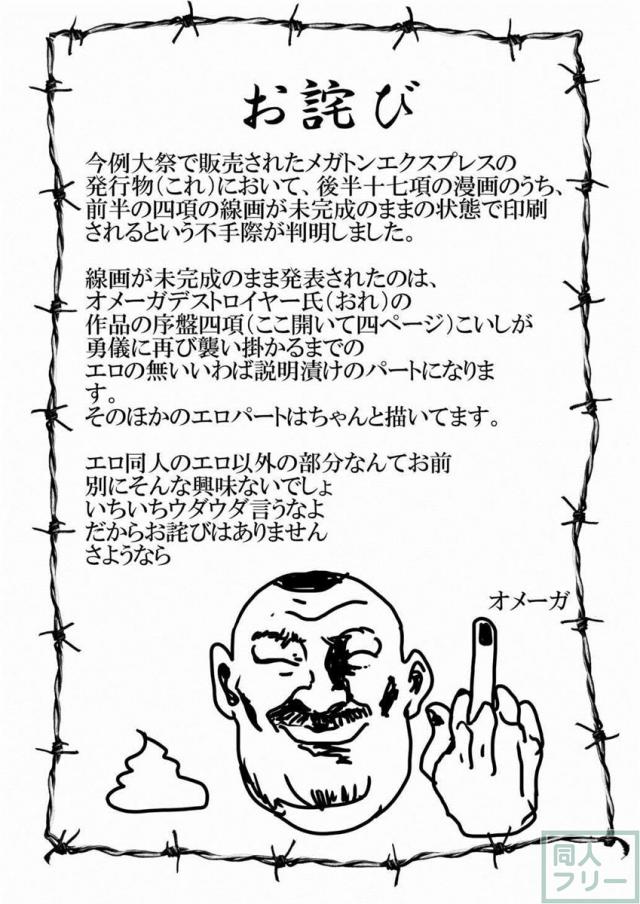 お詫び
今例大祭で販売されたメガトンエクスプレスの
発行物（これ）において、後半十七項の漫画のうち、
前半の四項の線画が未完成のままの状態で印刷
されるという不手際が判明しました。
線画が未完成のまま発表されたのは、
オメーガデストロイヤー氏（おれ）の
作品の序盤四項（ここ開いて四ページ）こいしが
勇儀に再び襲い掛かるまでの
エロの無いいわば説明漬けのパートになりま
す。
そのほかのエロパートはちゃんと描いてます。
エロ同人のエロ以外の部分なんてお前
別にそんな興味ないでしょ
いちいちウダウダ言うなよ
だからお詫びはありません
さようなら
オメーガ
同人
フリー